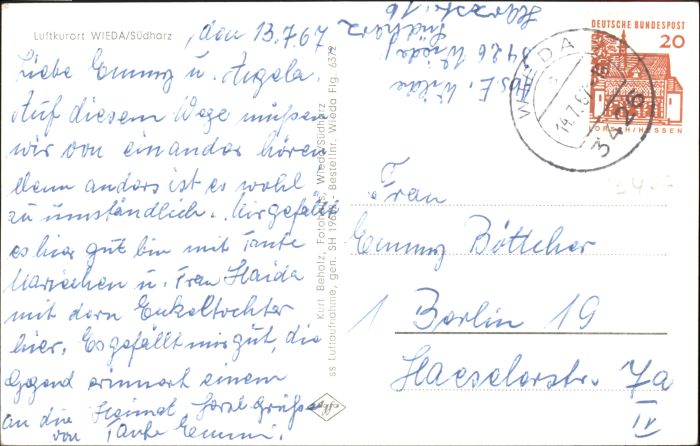 Luftkurort WIEDA/Südharz
, den 13.7.67
Liebe Emmy u. Angela.
Auf diesem Wege müßen
wir von einander hören
denn anders ist es wohl
zu umständlich. Mir gefällt
es hier gut bin mit Tante
Mariechen u. Frau Haida
mit dern Enkeltochter
hier. Es gefällt mir gut, die
Gegend erinnert einem
an die Heimat Herzl Grüße
von Tante Emmi.
Kurt Beholz, Fotohaus, Wieda/Südharz
ss Luftaufnahme, gen. SH - Bestellnr. Wieda Flg. 6372
Abs. E. Wilde
3426 Wieda/
Südharz
Harzstr. 16
DEUTSCHE BUNDESPOST
20
LORSCH/HESSEN
WIEDA
14.7.67-16
3426
Frau
Emmy Böttcher
1 Berlin 19
Haeselerstr. 7a
IV